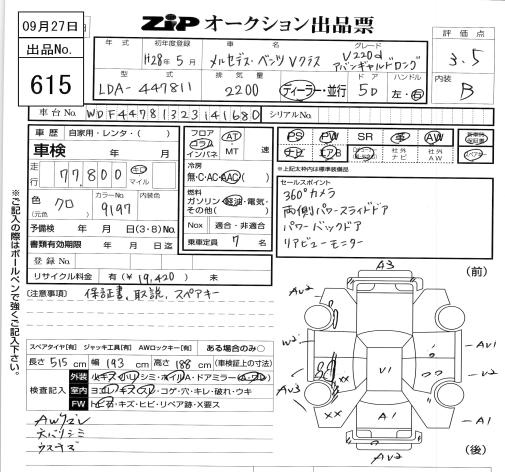 09月27日
ZIPオークション出品票
出品No. 615
年式 初年度登録 車名 グレード 評価点
H28年5月 メルセデス・ベンツ Vクラス V220d アバンギャルドロング 3.5
型式 排気量 ドア ハンドル 内装
LDA-447811 2200 ディーラー・並行 5D 左・右 B
車台No. WDF44781323141680 シリアルNo.
車歴 自家用・レンタ・( )
車検 年 月
走行 77,800 キロ マイル
色 クロ (元色) カラーNo. 9197 内装色
予備検 年 月(3・8)
書類有効期限 年 月 日
登録No.
リサイクル料金 有(¥19,420) 未
フロア コラム インパネ AT MT 速
冷房 無・C・AC・AAC( )
燃料 ガソリン・軽油・電気・その他( )
Nox 適合・非適合
乗車定員 7 名
PS PW SR 革 AW
ナビ エアB 社外ナビ 社外AW
スペアキー
※上記太枠内は標準装備品
セールスポイント
360°カメラ
両側パワースライドドア
パワーバックドア
リアビューモニター
(注意事項) 保証書、取説、スペアキー
※ご記入の際はボールペンで強くご記入下さい。
スペアタイヤ[有] ジャッキ工具[有] AWロックキー[有] ある場合のみ○
長さ 515 cm 幅 193 cm 高さ 188 cm (車検証上の寸法)
検査記入
外装 小キズ・凹・シミ・ホイルA・ドアミラー(A・ワレ)
室内 ヨゴレ・キズ・スレ・コゲ・穴・キレ・破れ・ウキ
FW トビ石・キズ・ヒビ・リペア跡・X要ス
AWキズ
天バリシミ
ウスキズ
(前)
A3
AU2
AU1
W2
V1
U2
AU3
XX
XX
A1
A1
AU2
(後)